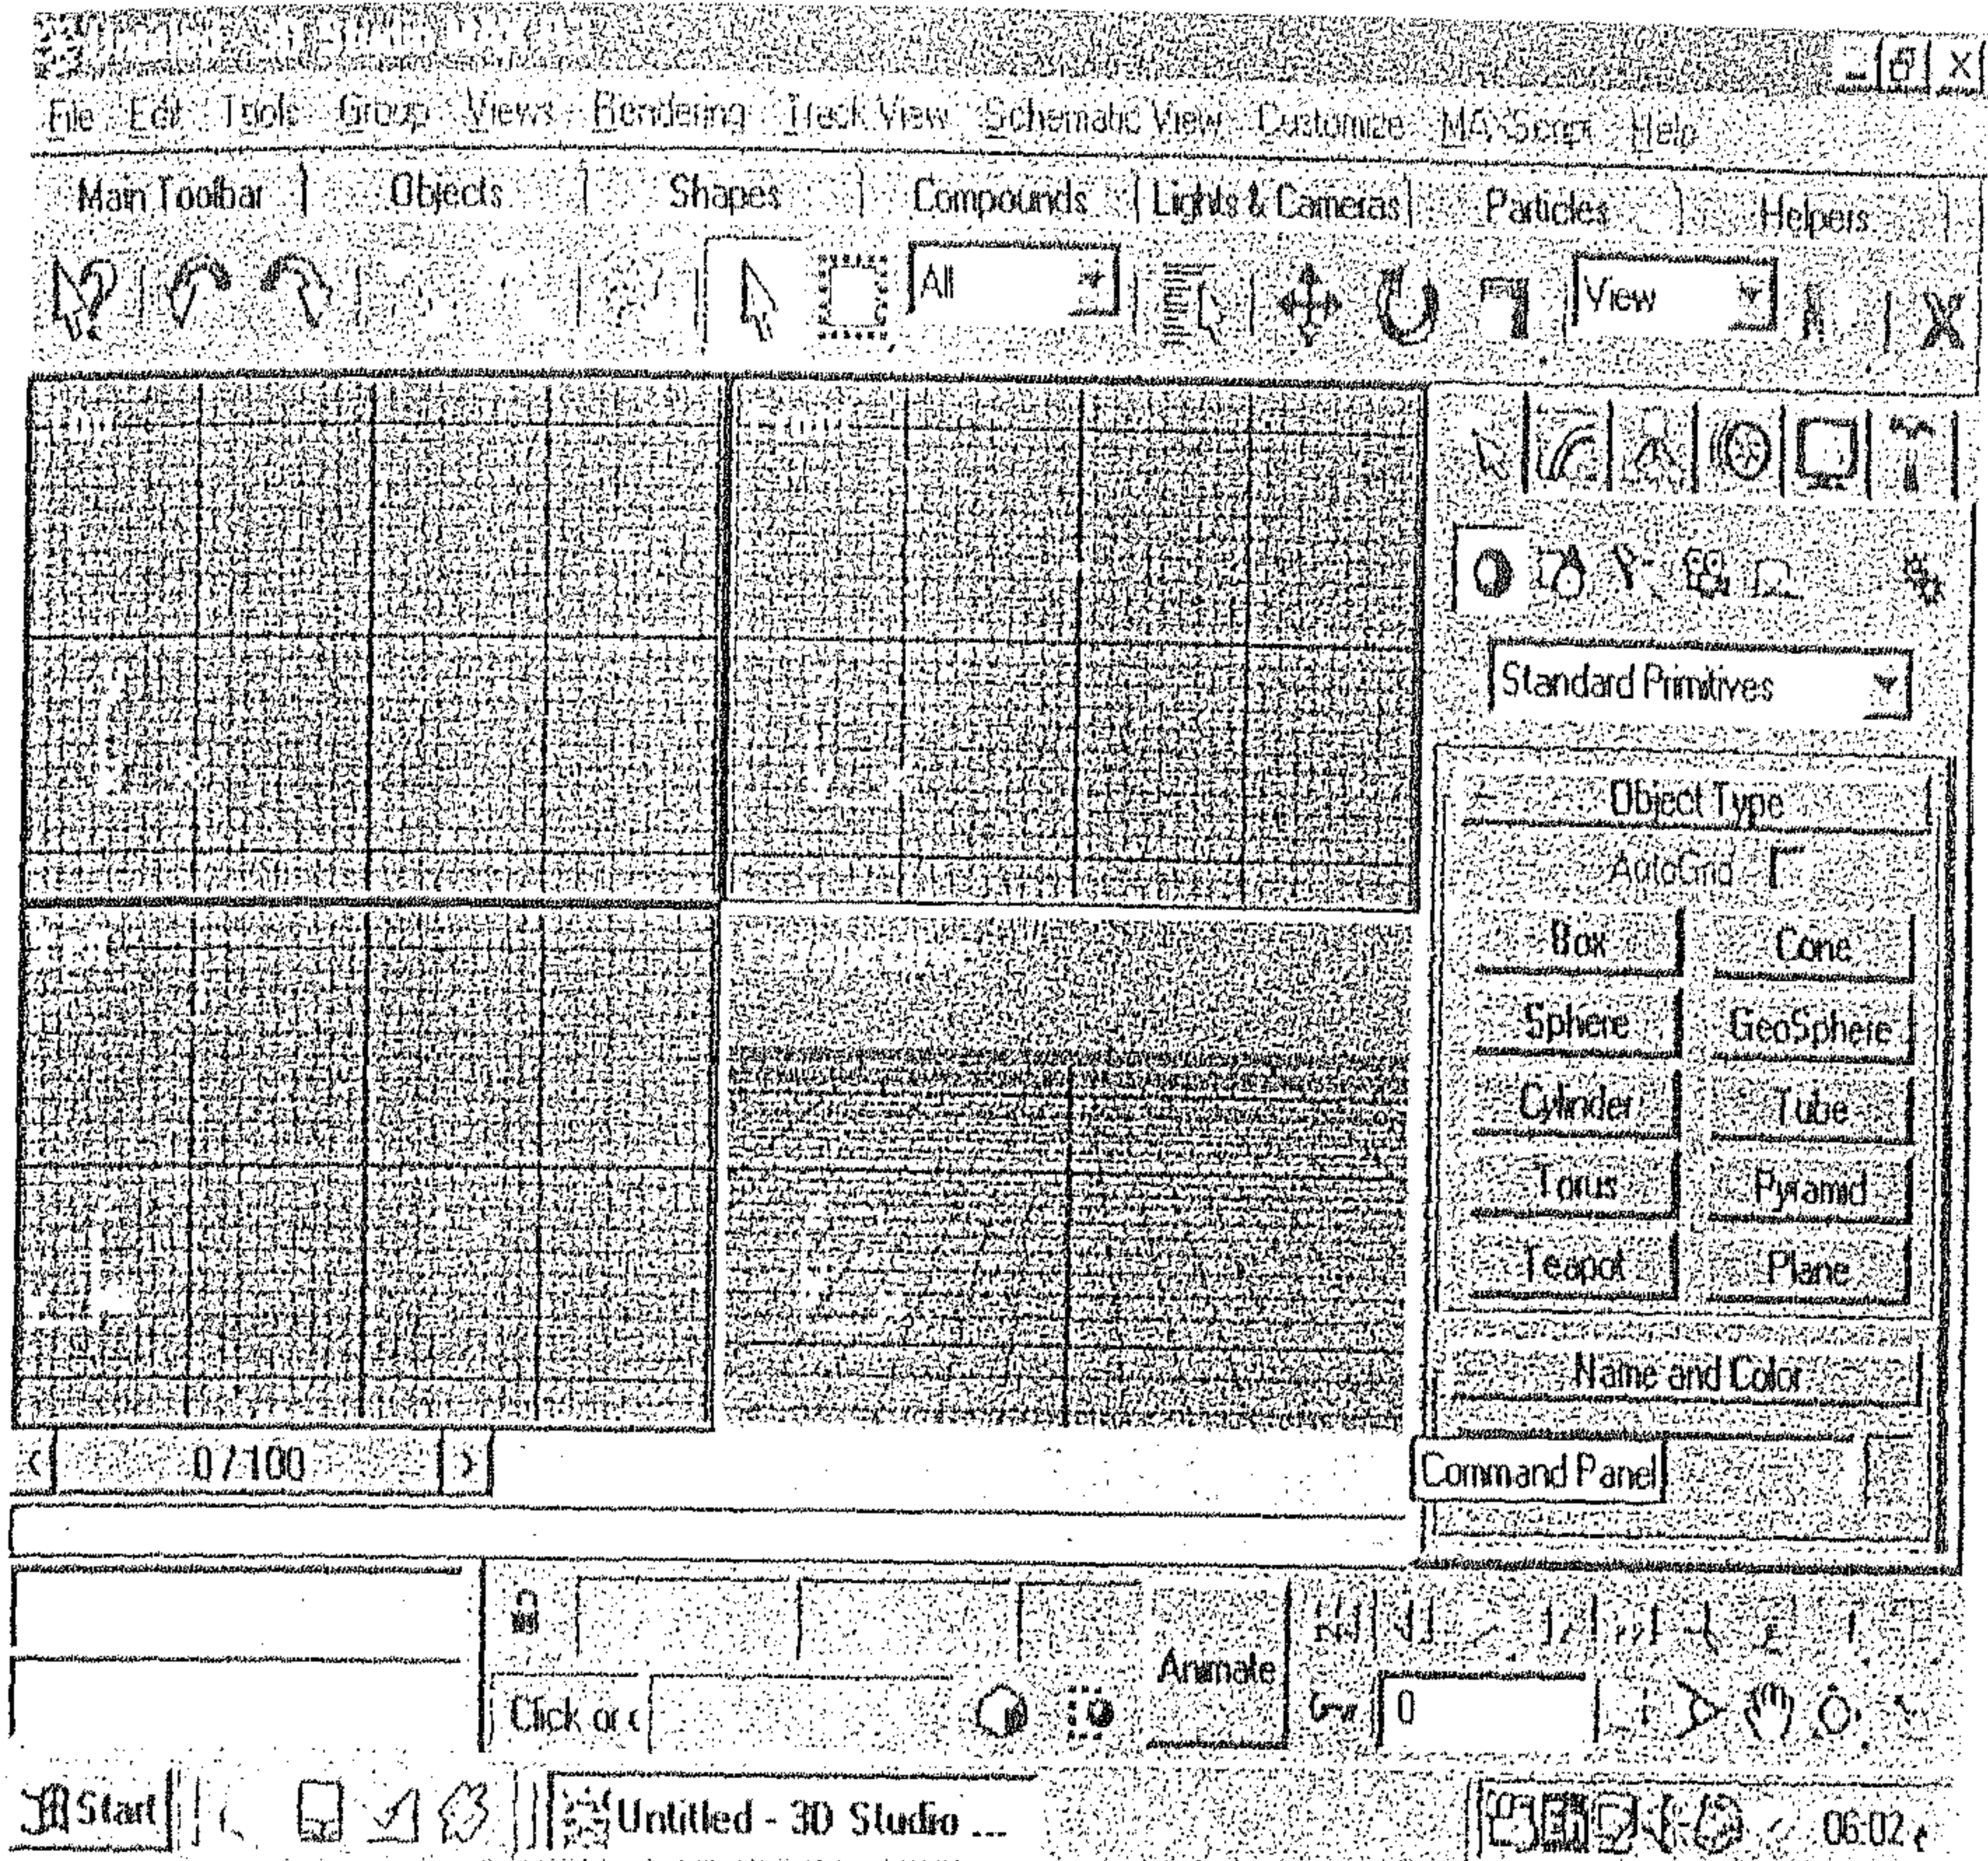 File Edit Tools Group Views Rendering Track View Schematic View Customize MAXScript Help
Main Toolbar Objects Shapes Compounds Lights & Cameras Particles Helpers
All View
Standard Primitives
Object Type
AutoGrid
Box Cone
Sphere GeoSphere
Cylinder Tube
Torus Pyramid
Teapot Plane
Name and Color
< 0 / 100 >
Command Panel
Animate
Click or c 0
Start Untitled - 3D Studio ... 06:02 م